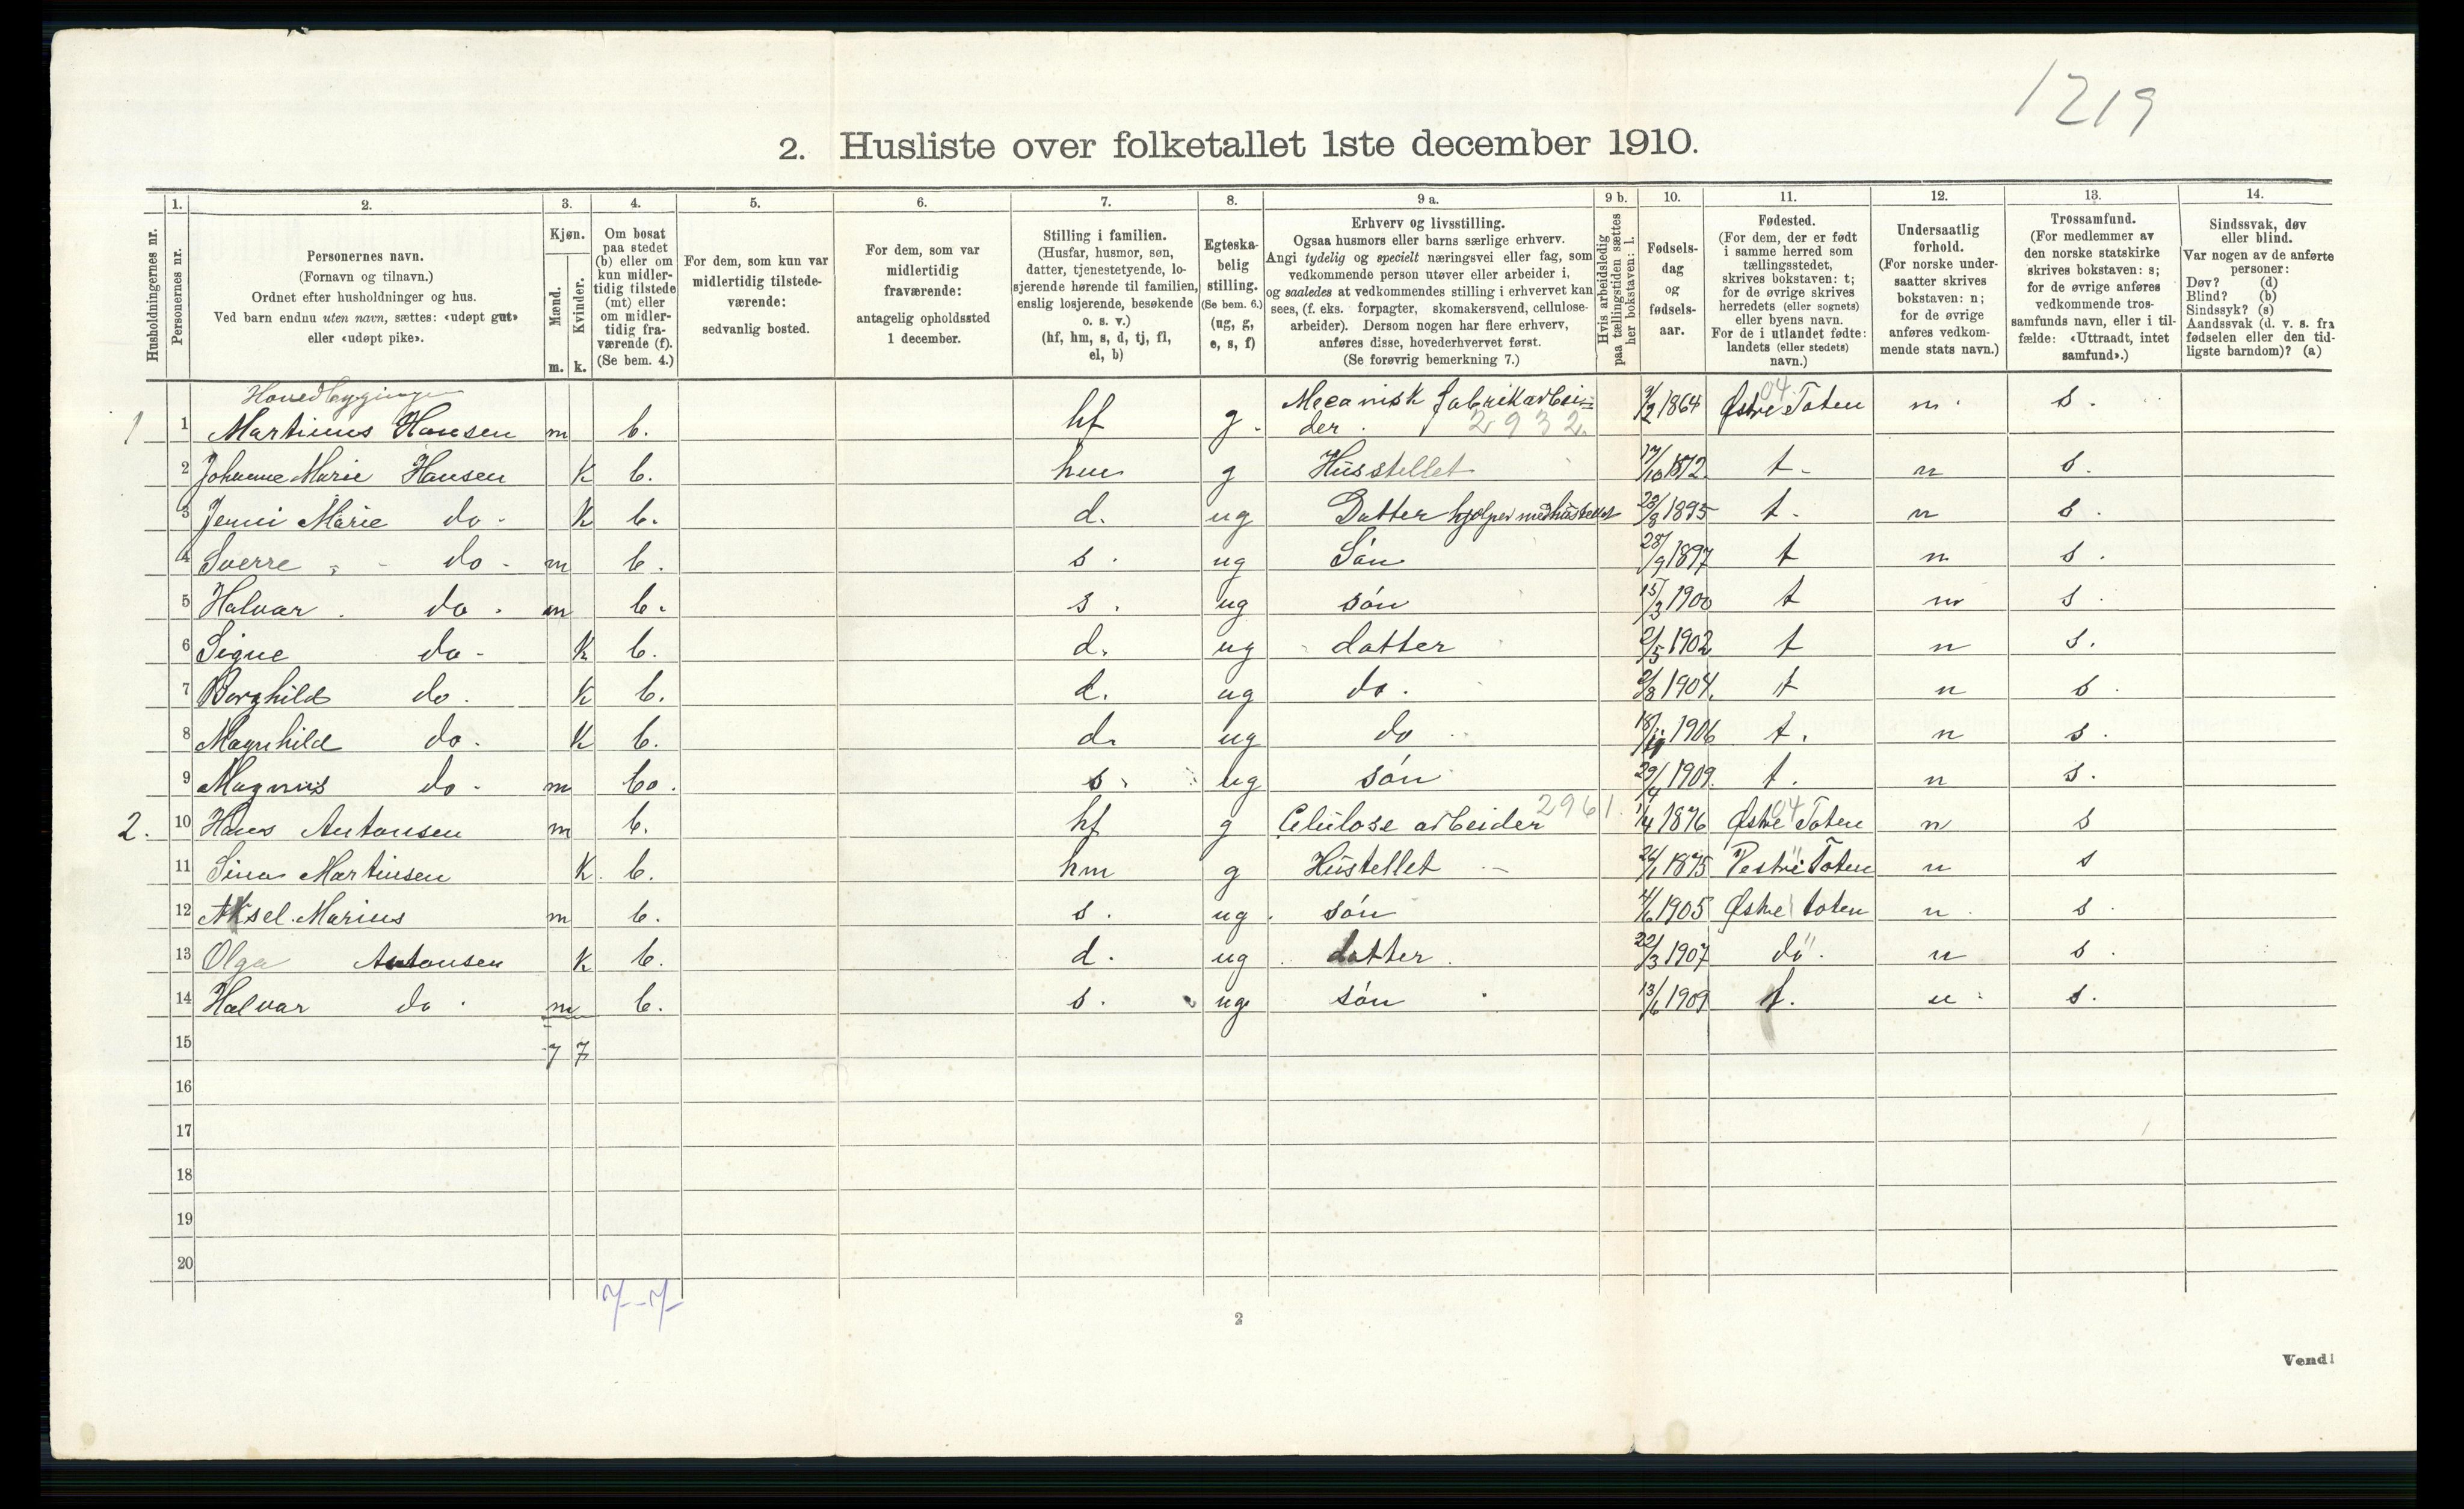 1219
2. Husliste over folketallet 1ste december 1910.
Husholdningernes nr.
1. Personernes nr.
2. Personernes navn.
(Fornavn og tilnavn.)
Ordnet efter husholdninger og hus.
Ved barn endnu uten navn, sættes: «udøpt gut»
eller «udøpt pike».
3. Kjøn.
Mænd. m.
Kvinder. k.
4. Om bosat
paa stedet
(b) eller om
kun midler-
tidig tilstede
(mt) eller
om midler-
tidig fra-
værende (f).
(Se bem. 4.)
5. For dem, som kun var
midlertidig tilstede-
værende:
sedvanlig bosted.
6. For dem, som var
midlertidig
fraværende:
antagelig opholdssted
1 december.
7. Stilling i familien.
(Husfar, husmor, søn,
datter, tjenestetyende, lo-
sjerende hørende til familien,
enslig losjerende, besøkende
o. s. v.)
(hf, hm, s, d, tj, fl,
el, b)
8. Egteska-
belig
stilling.
(Se bem. 6.)
(ug, g,
e, s, f)
9 a. Erhverv og livsstilling.
Ogsaa husmors eller barns særlige erhverv.
Angi tydelig og specielt næringsvei eller fag, som
vedkommende person utøver eller arbeider i,
og saaledes at vedkommendes stilling i erhvervet kan
sees, (f. eks. forpagter, skomakersvend, cellulose-
arbeider). Dersom nogen har flere erhverv,
anføres disse, hovederhvervet først.
(Se forøvrig bemerkning 7.)
9 b. Hvis arbeidsledig
paa tællingstiden sættes
her bokstaven: l.
10. Fødsels-
dag
og
fødsels-
aar.
11. Fødested.
(For dem, der er født
i samme herred som
tællingsstedet,
skrives bokstaven: t;
for de øvrige skrives
herredets (eller sognets)
eller byens navn.
For de i utlandet fødte:
landets (eller stedets)
navn.)
12. Undersaatlig
forhold.
(For norske under-
saatter skrives
bokstaven: n;
for de øvrige
anføres vedkom-
mende stats navn.)
13. Trossamfund.
(For medlemmer av
den norske statskirke
skrives bokstaven: s;
for de øvrige anføres
vedkommende tros-
samfunds navn, eller i til-
fælde: «Uttraadt, intet
samfund».)
14. Sindssvak, døv
eller blind.
Var nogen av de anførte
personer:
Døv? (d)
Blind? (b)
Sindssyk? (s)
Aandssvak (d. v. s. fra
fødselen eller den tid-
ligste barndom)? (a)
Hovedbygninge
1 1 Martinus Hansen m b. hf g. Mecanisk fabrikarbei=
der. 2932. 9/2 1864 Østre Toten 04 n. s.
2 Johanne Marie Hansen K b. hm g Husstellet 17/10 1872. t. n s.
3 Jenni Marie do. K b. d. ug Datter hjelper med hustellet 23/8 1895 t. n s.
4 Sverre do. m b. s. ug Søn 28/9 1897 t n s.
5 Halvar do. m b. s. ug søn 15/3 1900 t n s.
6 Signe do. K b. d. ug datter 2/5 1902 t n s.
7 Borghild do. K b. d. ug do. 2/8 1904. t n s.
8 Magnhild do. K b. d. ug do 1906 t. n s.
9 Magnus do. m bo. s. ug søn 29/4 1909. t. n s.
2. 10 Hans Antonsen m b. hf g Celulose arbeider 2961. 1/4 1876 Østre Toten 04 n s
11 Sina Martinsen K. b. hm g Hustellet 26/1 1875 Vestre Toten n s
12 Aksel Marius m b. s. ug. søn 4/6 1905 Østre toten n. s.
13 Olga Antonsen K b. d. ug datter. 22/3 1907 do. n s.
14 Halvar do. m b. s. ug søn 13/6 1909 t. n. s.
15 7 7
16
17
18
19
20
7-7-
2
Vend!